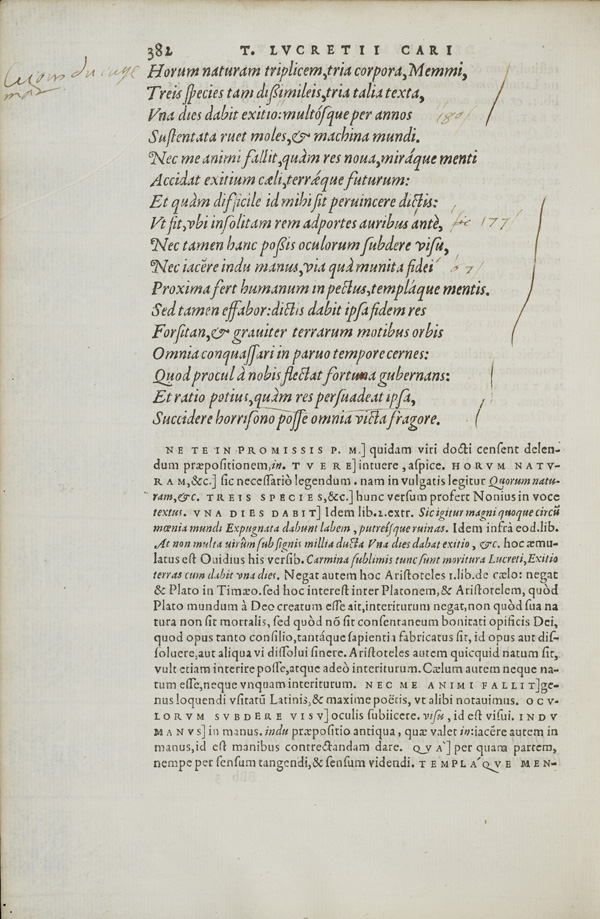 382 T. LVCRETII CARI
Horum naturam triplicem, tria corpora, Memmi,
Treis species tam dißimileis, tria talia texta,
Vna dies dabit exitio: multósque per annos
Sustentata ruet moles, & machina mundi.
Nec me animi fallit, quàm res noua, miráque menti
Accidat exitium cæli, terræque futurum:
Et quàm difficile id mihi sit peruincere dictis:
Vt fit, vbi insolitam rem adportes auribus antè,
Nec tamen hanc poßis oculorum subdere visu,
Nec iacĕre indu manus, via quà munita fidei
Proxima fert humanum in pectus, templáque mentis.
Sed tamen effabor: dictis dabit ipsa fidem res
Forsitan, & grauiter terrarum motibus orbis
Omnia conquassari in paruo tempore cernes:
Quod procul à nobis flectat fortuna gubernans:
Et ratio potius, quàm res persuadeat ipsa,
Succidere horrisono posse omnia victa fragore.
NE TE IN PROMISSIS P. M.] quidam viri docti censent delen-
dum præpositionem, in. TVERE] intuere, aspice. HORVM NATV-
RAM, &c.] sic necessariò legendum. nam in vulgatis legitur Quorum natu-
ram, &c. TREIS SPECIES, &c.] hunc versum profert Nonius in voce
textus. VNA DIES DABIT] Idem lib. 2. extr. Sic igitur magni quoque circũ
mœnia mundi Expugnata dabunt labem, putreisque ruinas. Idem infrà eod. lib.
At non multa virûm sub signis millia ducta Vna dies dabat exitio, &c. hoc æmu-
latus est Ouidius his versib. Carmina sublimis tunc sunt moritura Lucreti, Exitio
terras cum dabit vna dies. Negat autem hoc Aristoteles 1. lib. de cælo: negat
& Plato in Timæo. sed hoc interest inter Platonem, & Aristotelem, quòd
Plato mundum à Deo creatum esse ait, interiturum negat, non quòd sua na
tura non sit mortalis, sed quòd nõ sit consentaneum bonitati opificis Dei,
quod opus tanto consilio, tantáque sapientia fabricatus sit, id opus aut dis-
soluere, aut aliqua vi dissolui sinere. Aristoteles autem quicquid natum sit,
vult etiam interire posse, atque adeò interiturum. Cælum autem neque na-
tum esse, neque vnquam interiturum. NEC ME ANIMI FALLIT] ge-
nus loquendi vsitatũ Latinis, & maxime poëtis, vt alibi notauimus. OCV-
LORVM SVBDERE VISV] oculis subiicere. visu, id est visui. INDV
MANVS] in manus. indu præpositio antiqua, quæ valet in: iacĕre autem in
manus, id est manibus contrectandam dare. QVA] per quam partem,
nempe per sensum tangendi, & sensum videndi. TEMPLAQVE MEN-